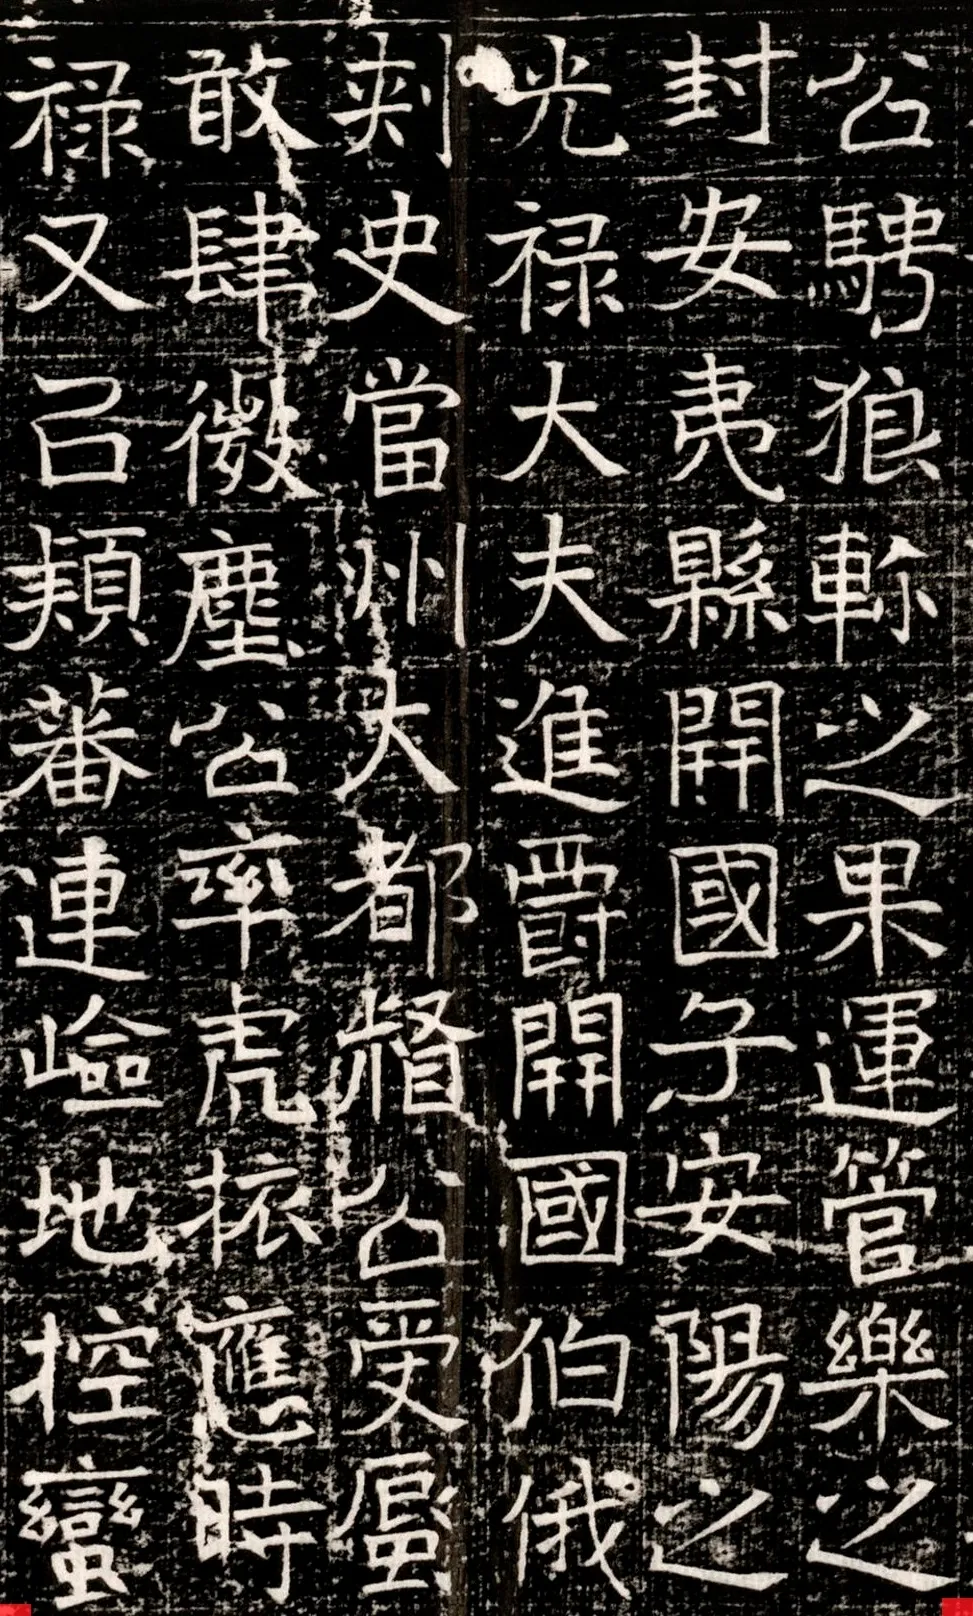 公騁狼軫之果運管樂之
封安夷縣開國子安陽之
光祿大夫進爵開國伯俄
刺史當州大都督公受
敢肆微塵公率虎旅應時
祿又召類蕃連嶮地控蠻